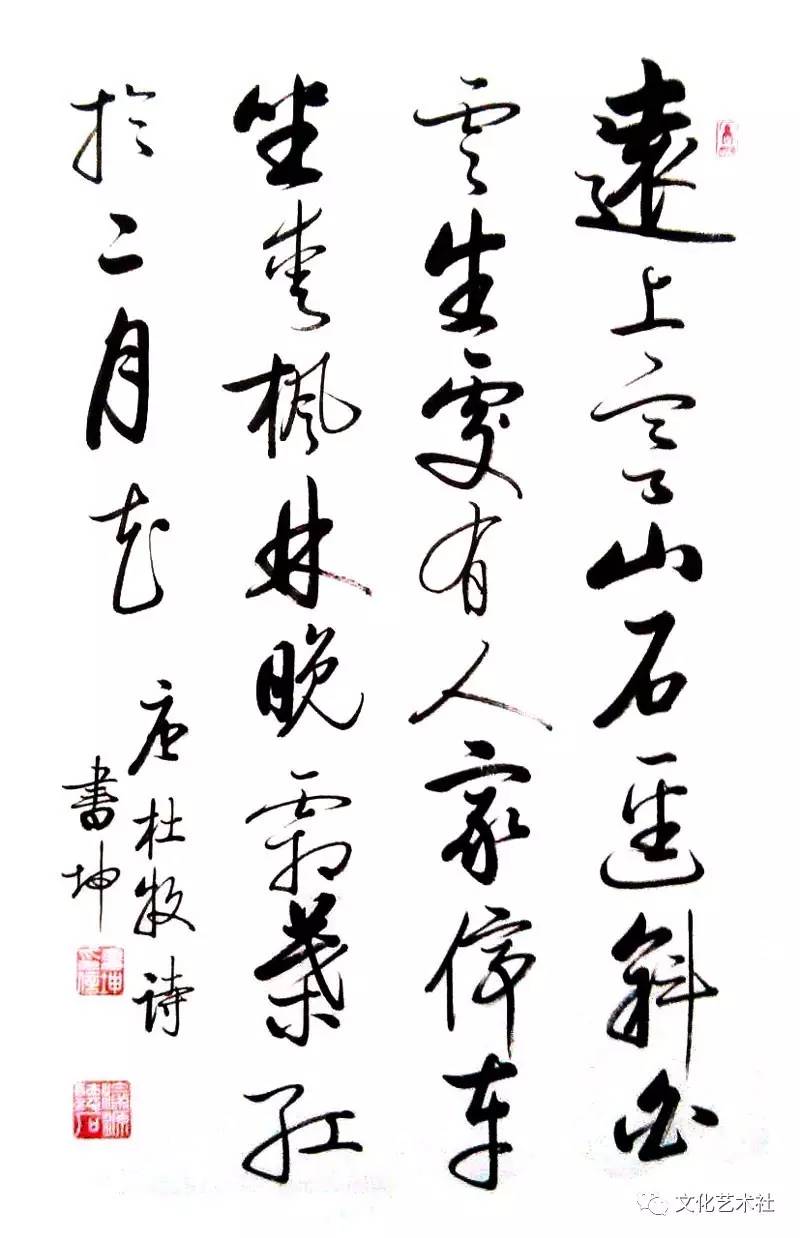 遠上寒山石逕斜白
雲生處有人家停車
坐愛楓林晚霜葉紅
於二月花
唐杜牧詩
書坤
文化艺术社